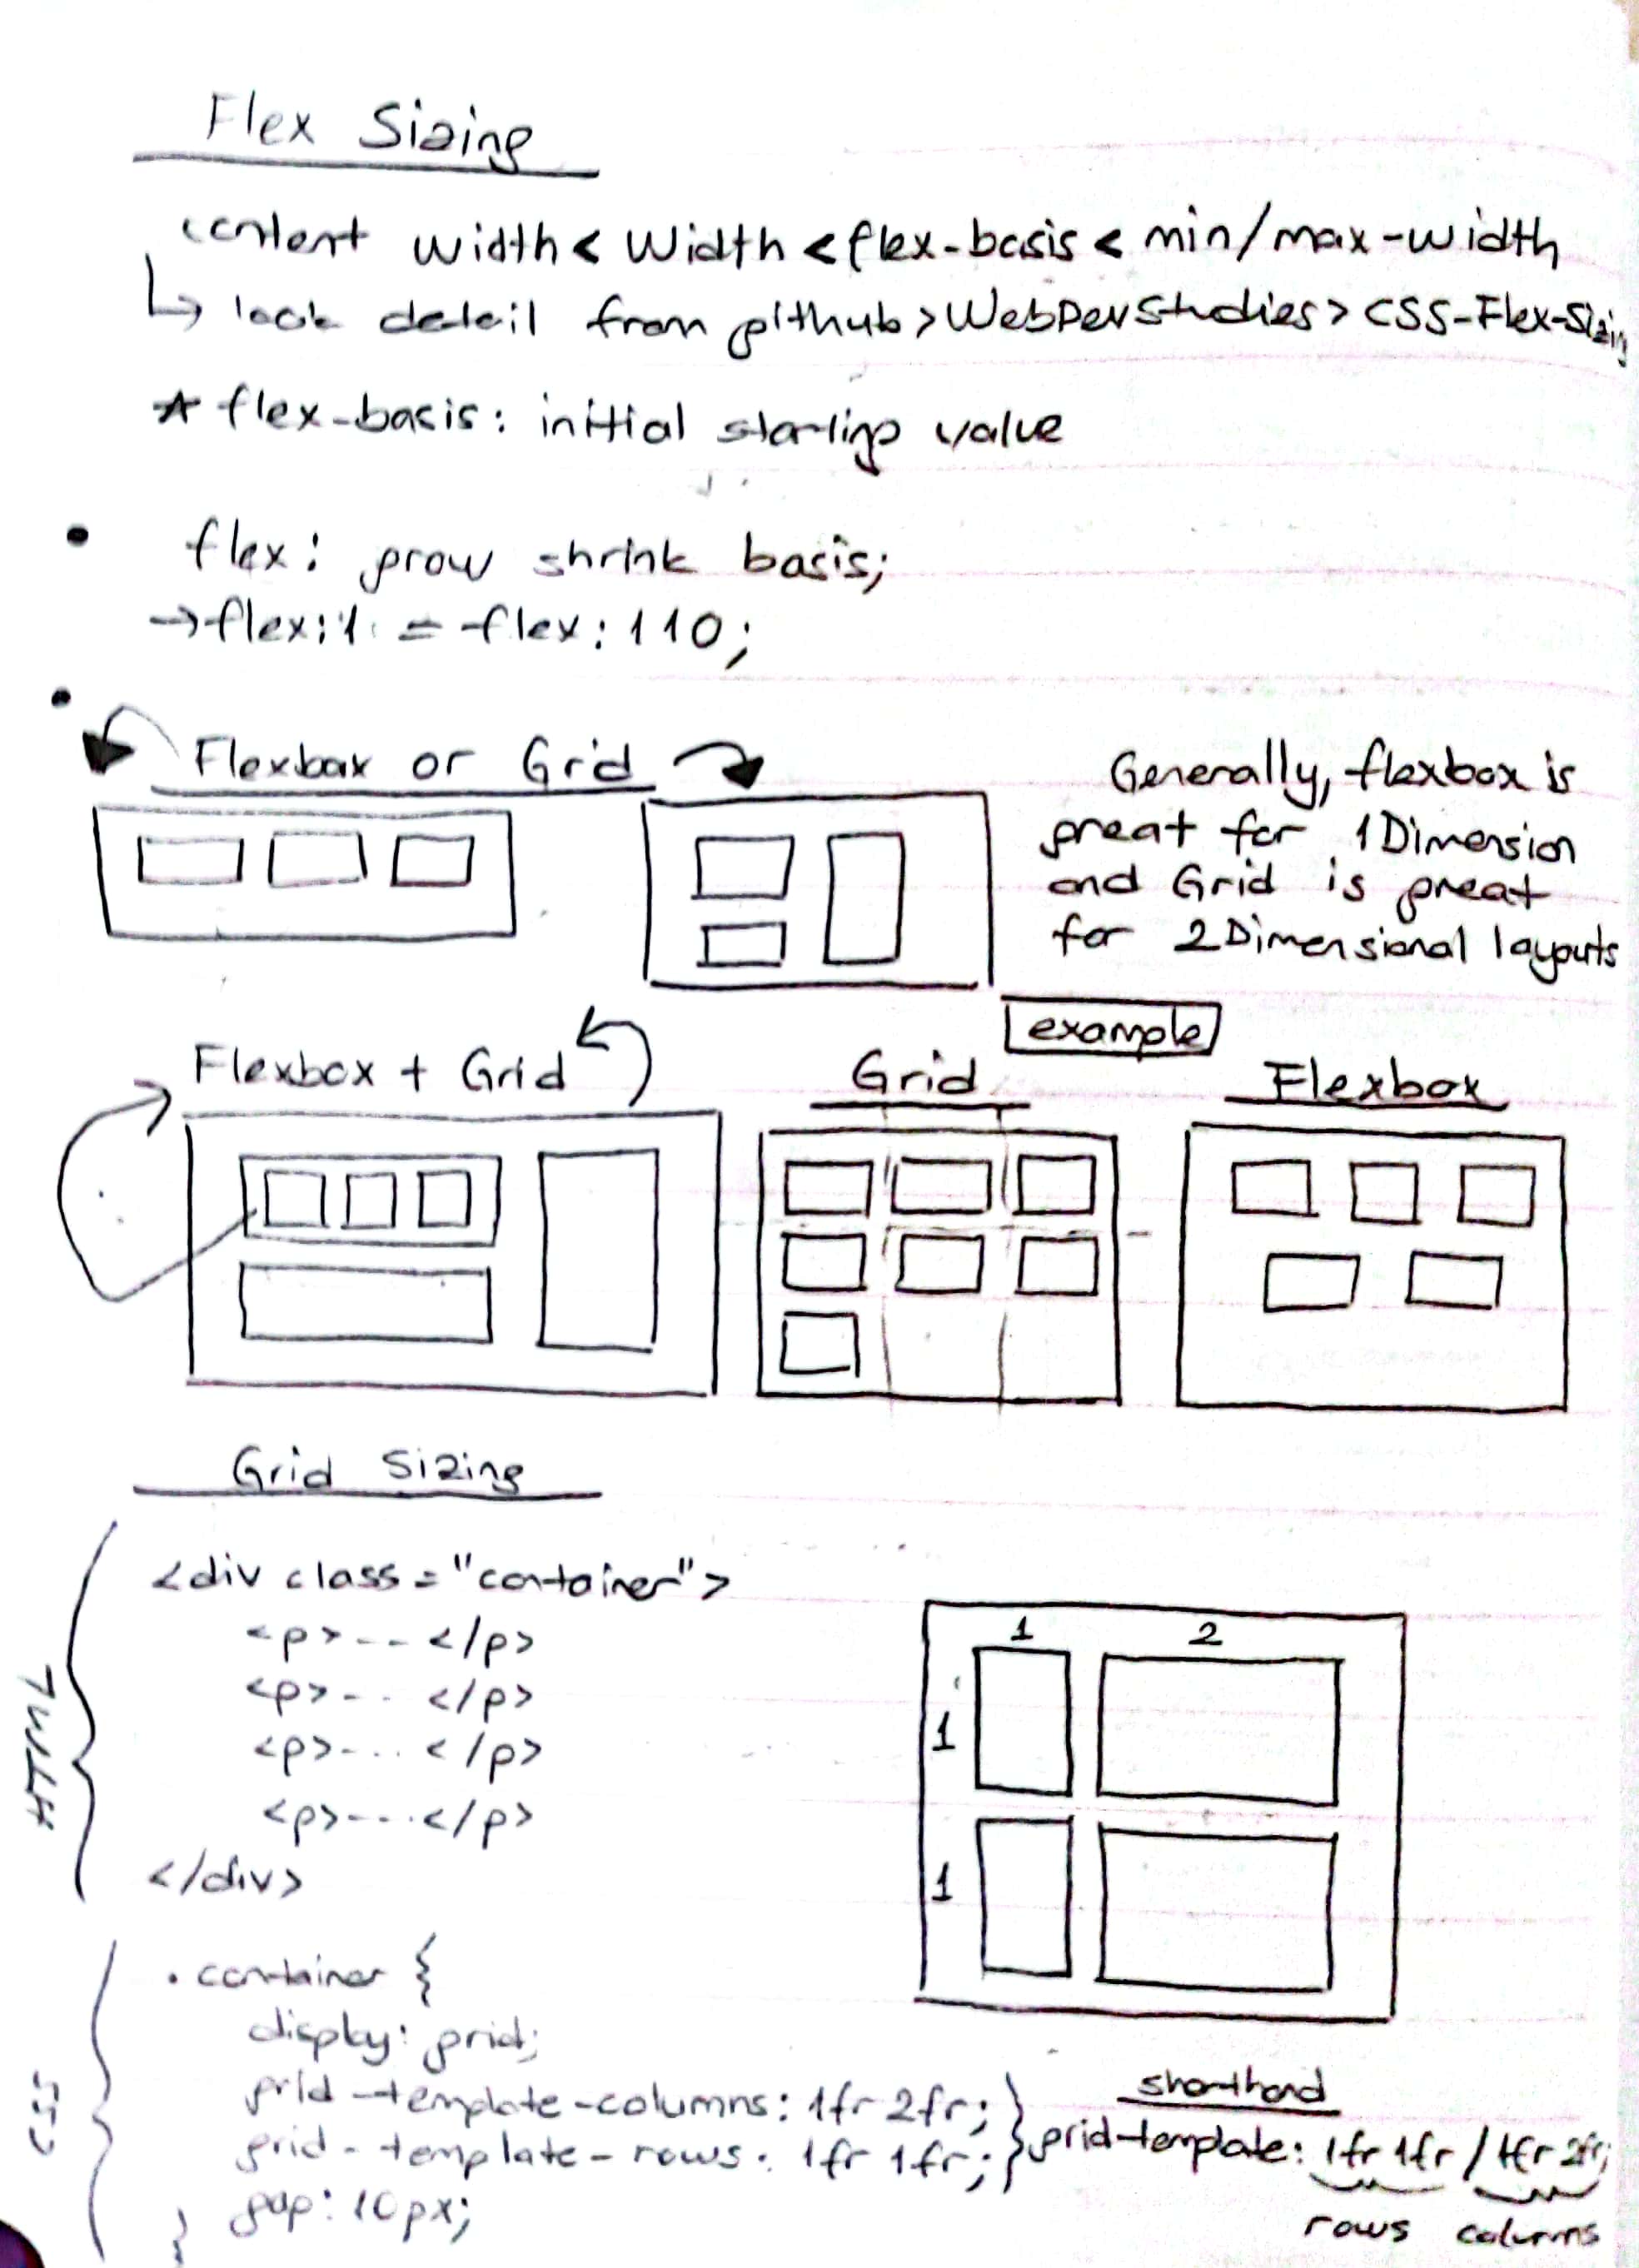 Flex Sizing
content width < Width < flex-basis < min/max-width
↳ look detail from github > WebDevStudies > CSS-Flex-Sizing
★ flex-basis: initial starting value
• flex: grow shrink basis;
→ flex:1 = flex: 1 1 0;
• Flexbox or Grid
Generally, flexbox is
great for 1Dimension
and Grid is great
for 2Dimensional layouts
example
Flexbox + Grid
Grid
Flexbox
Grid Sizing
HTML
<div class="container">
<p>--</p>
<p>-..</p>
<p>-...</p>
<p>--..</p>
</div>
1 2
1
1
CSS
.container {
display: grid;
grid-template-columns: 1fr 2fr;
grid-template-rows: 1fr 1fr;
gap: 10px;
}
shorthand
grid-template: 1fr 1fr / 1fr 2fr;
rows columns